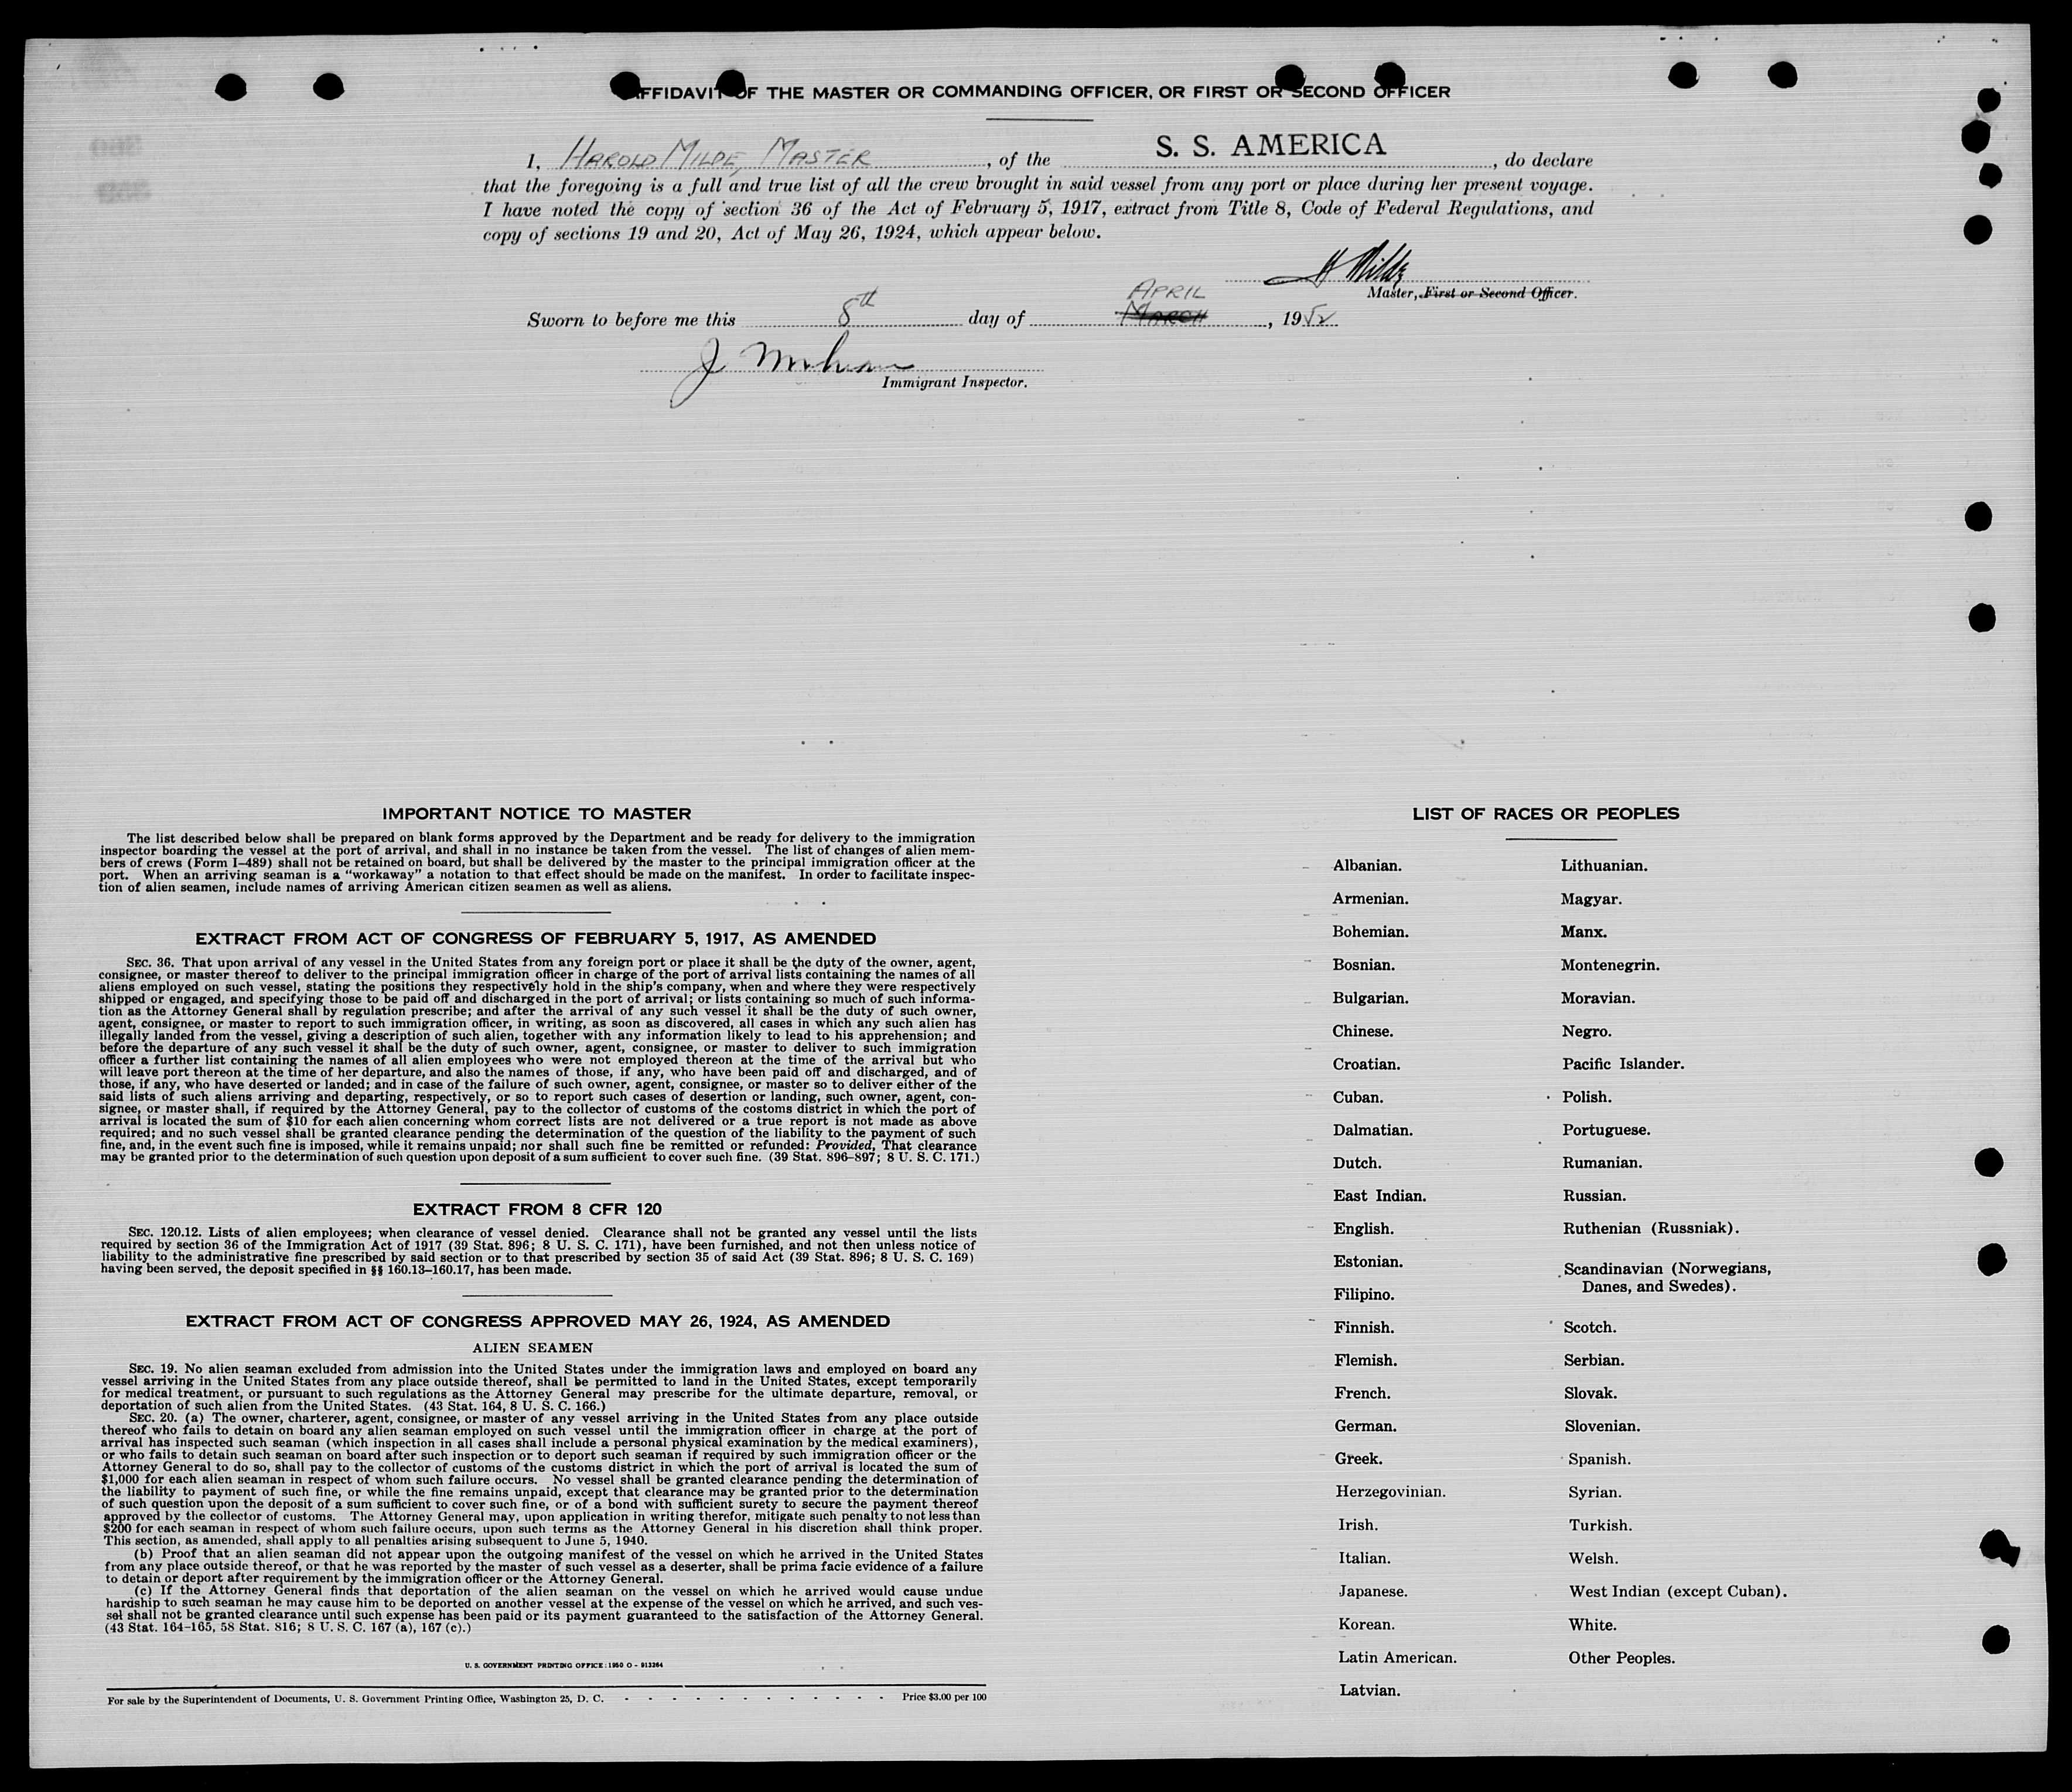 AFFIDAVIT OF THE MASTER OR COMMANDING OFFICER, OR FIRST OR SECOND OFFICER
I, HAROLD MILDE, MASTER, of the S. S. AMERICA, do declare
that the foregoing is a full and true list of all the crew brought in said vessel from any port or place during her present voyage.
I have noted the copy of section 36 of the Act of February 5, 1917, extract from Title 8, Code of Federal Regulations, and
copy of sections 19 and 20, Act of May 26, 1924, which appear below.
H Milde
Master, First or Second Officer.
APRIL
Sworn to before me this 8th day of MARCH, 1952
J
Immigrant Inspector.
IMPORTANT NOTICE TO MASTER
The list described below shall be prepared on blank forms approved by the Department and be ready for delivery to the immigration
inspector boarding the vessel at the port of arrival, and shall in no instance be taken from the vessel. The list of changes of alien mem-
bers of crews (Form I-489) shall not be retained on board, but shall be delivered by the master to the principal immigration officer at the
port. When an arriving seaman is a "workaway" a notation to that effect should be made on the manifest. In order to facilitate inspec-
tion of alien seamen, include names of arriving American citizen seamen as well as aliens.
EXTRACT FROM ACT OF CONGRESS OF FEBRUARY 5, 1917, AS AMENDED
SEC. 36. That upon arrival of any vessel in the United States from any foreign port or place it shall be the duty of the owner, agent,
consignee, or master thereof to deliver to the principal immigration officer in charge of the port of arrival lists containing the names of all
aliens employed on such vessel, stating the positions they respectively hold in the ship's company, when and where they were respectively
shipped or engaged, and specifying those to be paid off and discharged in the port of arrival; or lists containing so much of such informa-
tion as the Attorney General shall by regulation prescribe; and after the arrival of any such vessel it shall be the duty of such owner,
agent, consignee, or master to report to such immigration officer, in writing, as soon as discovered, all cases in which any such alien has
illegally landed from the vessel, giving a description of such alien, together with any information likely to lead to his apprehension; and
before the departure of any such vessel it shall be the duty of such owner, agent, consignee, or master to deliver to such immigration
officer a further list containing the names of all alien employees who were not employed thereon at the time of the arrival but who
will leave port thereon at the time of her departure, and also the names of those, if any, who have been paid off and discharged, and of
those, if any, who have deserted or landed; and in case of the failure of such owner, agent, consignee, or master so to deliver either of the
said lists of such aliens arriving and departing, respectively, or so to report such cases of desertion or landing, such owner, agent, con-
signee, or master shall, if required by the Attorney General, pay to the collector of customs of the costoms district in which the port of
arrival is located the sum of $10 for each alien concerning whom correct lists are not delivered or a true report is not made as above
required; and no such vessel shall be granted clearance pending the determination of the question of the liability to the payment of such
fine, and, in the event such fine is imposed, while it remains unpaid; nor shall such fine be remitted or refunded: Provided, That clearance
may be granted prior to the determination of such question upon deposit of a sum sufficient to cover such fine. (39 Stat. 896-897; 8 U. S. C. 171.)
EXTRACT FROM 8 CFR 120
SEC. 120.12. Lists of alien employees; when clearance of vessel denied. Clearance shall not be granted any vessel until the lists
required by section 36 of the Immigration Act of 1917 (39 Stat. 896; 8 U. S. C. 171), have been furnished, and not then unless notice of
liability to the administrative fine prescribed by said section or to that prescribed by section 35 of said Act (39 Stat. 896; 8 U. S. C. 169)
having been served, the deposit specified in §§ 160.13-160.17, has been made.
EXTRACT FROM ACT OF CONGRESS APPROVED MAY 26, 1924, AS AMENDED
ALIEN SEAMEN
SEC. 19. No alien seaman excluded from admission into the United States under the immigration laws and employed on board any
vessel arriving in the United States from any place outside thereof, shall be permitted to land in the United States, except temporarily
for medical treatment, or pursuant to such regulations as the Attorney General may prescribe for the ultimate departure, removal, or
deportation of such alien from the United States. (43 Stat. 164, 8 U. S. C. 166.)
SEC. 20. (a) The owner, charterer, agent, consignee, or master of any vessel arriving in the United States from any place outside
thereof who fails to detain on board any alien seaman employed on such vessel until the immigration officer in charge at the port of
arrival has inspected such seaman (which inspection in all cases shall include a personal physical examination by the medical examiners),
or who fails to detain such seaman on board after such inspection or to deport such seaman if required by such immigration officer or the
Attorney General to do so, shall pay to the collector of customs of the customs district in which the port of arrival is located the sum of
$1,000 for each alien seaman in respect of whom such failure occurs. No vessel shall be granted clearance pending the determination of
the liability to payment of such fine, or while the fine remains unpaid, except that clearance may be granted prior to the determination
of such question upon the deposit of a sum sufficient to cover such fine, or of a bond with sufficient surety to secure the payment thereof
approved by the collector of customs. The Attorney General may, upon application in writing therefor, mitigate such penalty to not less than
$200 for each seaman in respect of whom such failure occurs, upon such terms as the Attorney General in his discretion shall think proper.
This section, as amended, shall apply to all penalties arising subsequent to June 5, 1940.
(b) Proof that an alien seaman did not appear upon the outgoing manifest of the vessel on which he arrived in the United States
from any place outside thereof, or that he was reported by the master of such vessel as a deserter, shall be prima facie evidence of a failure
to detain or deport after requirement by the immigration officer or the Attorney General.
(c) If the Attorney General finds that deportation of the alien seaman on the vessel on which he arrived would cause undue
hardship to such seaman he may cause him to be deported on another vessel at the expense of the vessel on which he arrived, and such ves-
sel shall not be granted clearance until such expense has been paid or its payment guaranteed to the satisfaction of the Attorney General.
(43 Stat. 164-165, 58 Stat. 816; 8 U. S. C. 167 (a), 167 (c).)
U. S. GOVERNMENT PRINTING OFFICE: 1950 O - 913264
For sale by the Superintendent of Documents, U. S. Government Printing Office, Washington 25, D. C. - - - - - - - - - - - - Price $3.00 per 100
LIST OF RACES OR PEOPLES
Albanian.
Armenian.
Bohemian.
Bosnian.
Bulgarian.
Chinese.
Croatian.
Cuban.
Dalmatian.
Dutch.
East Indian.
English.
Estonian.
Filipino.
Finnish.
Flemish.
French.
German.
Greek.
Herzegovinian.
Irish.
Italian.
Japanese.
Korean.
Latin American.
Latvian.
Lithuanian.
Magyar.
Manx.
Montenegrin.
Moravian.
Negro.
Pacific Islander.
Polish.
Portuguese.
Rumanian.
Russian.
Ruthenian (Russniak).
Scandinavian (Norwegians,
Danes, and Swedes).
Scotch.
Serbian.
Slovak.
Slovenian.
Spanish.
Syrian.
Turkish.
Welsh.
West Indian (except Cuban).
White.
Other Peoples.